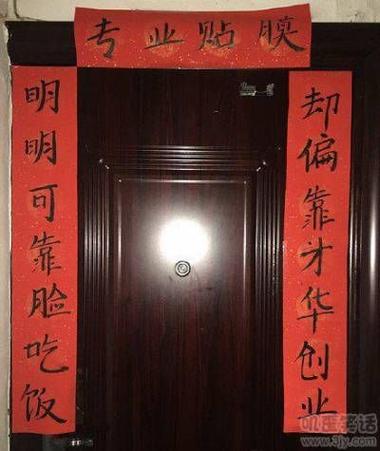 专业贴膜
明明可靠脸吃饭
却偏靠才华创业
叽歪笑话
www.3jy.com